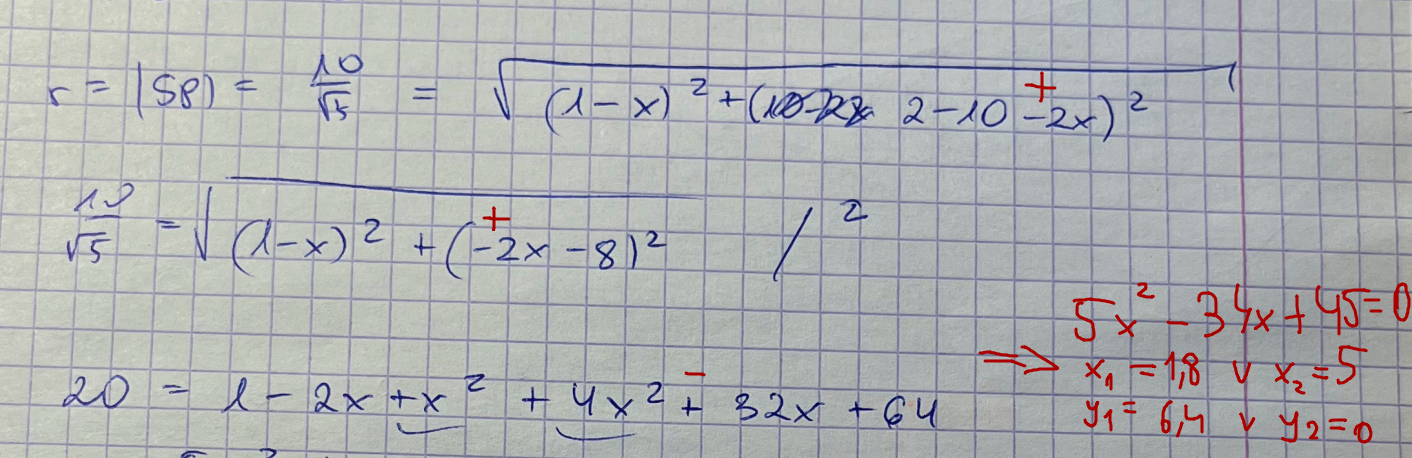 r = |SP| = 10/√5 = √((1-x)² + (2-10 -2x)²)
+
10/√5 = √((1-x)² + (-2x-8)²) / ²
+
20 = 1-2x+x² + 4x² + 32x + 64
-
5x² - 34x + 45 = 0
⇒ x₁ = 1,8 ∨ x₂ = 5
y₁ = 6,4 ∨ y₂ = 0